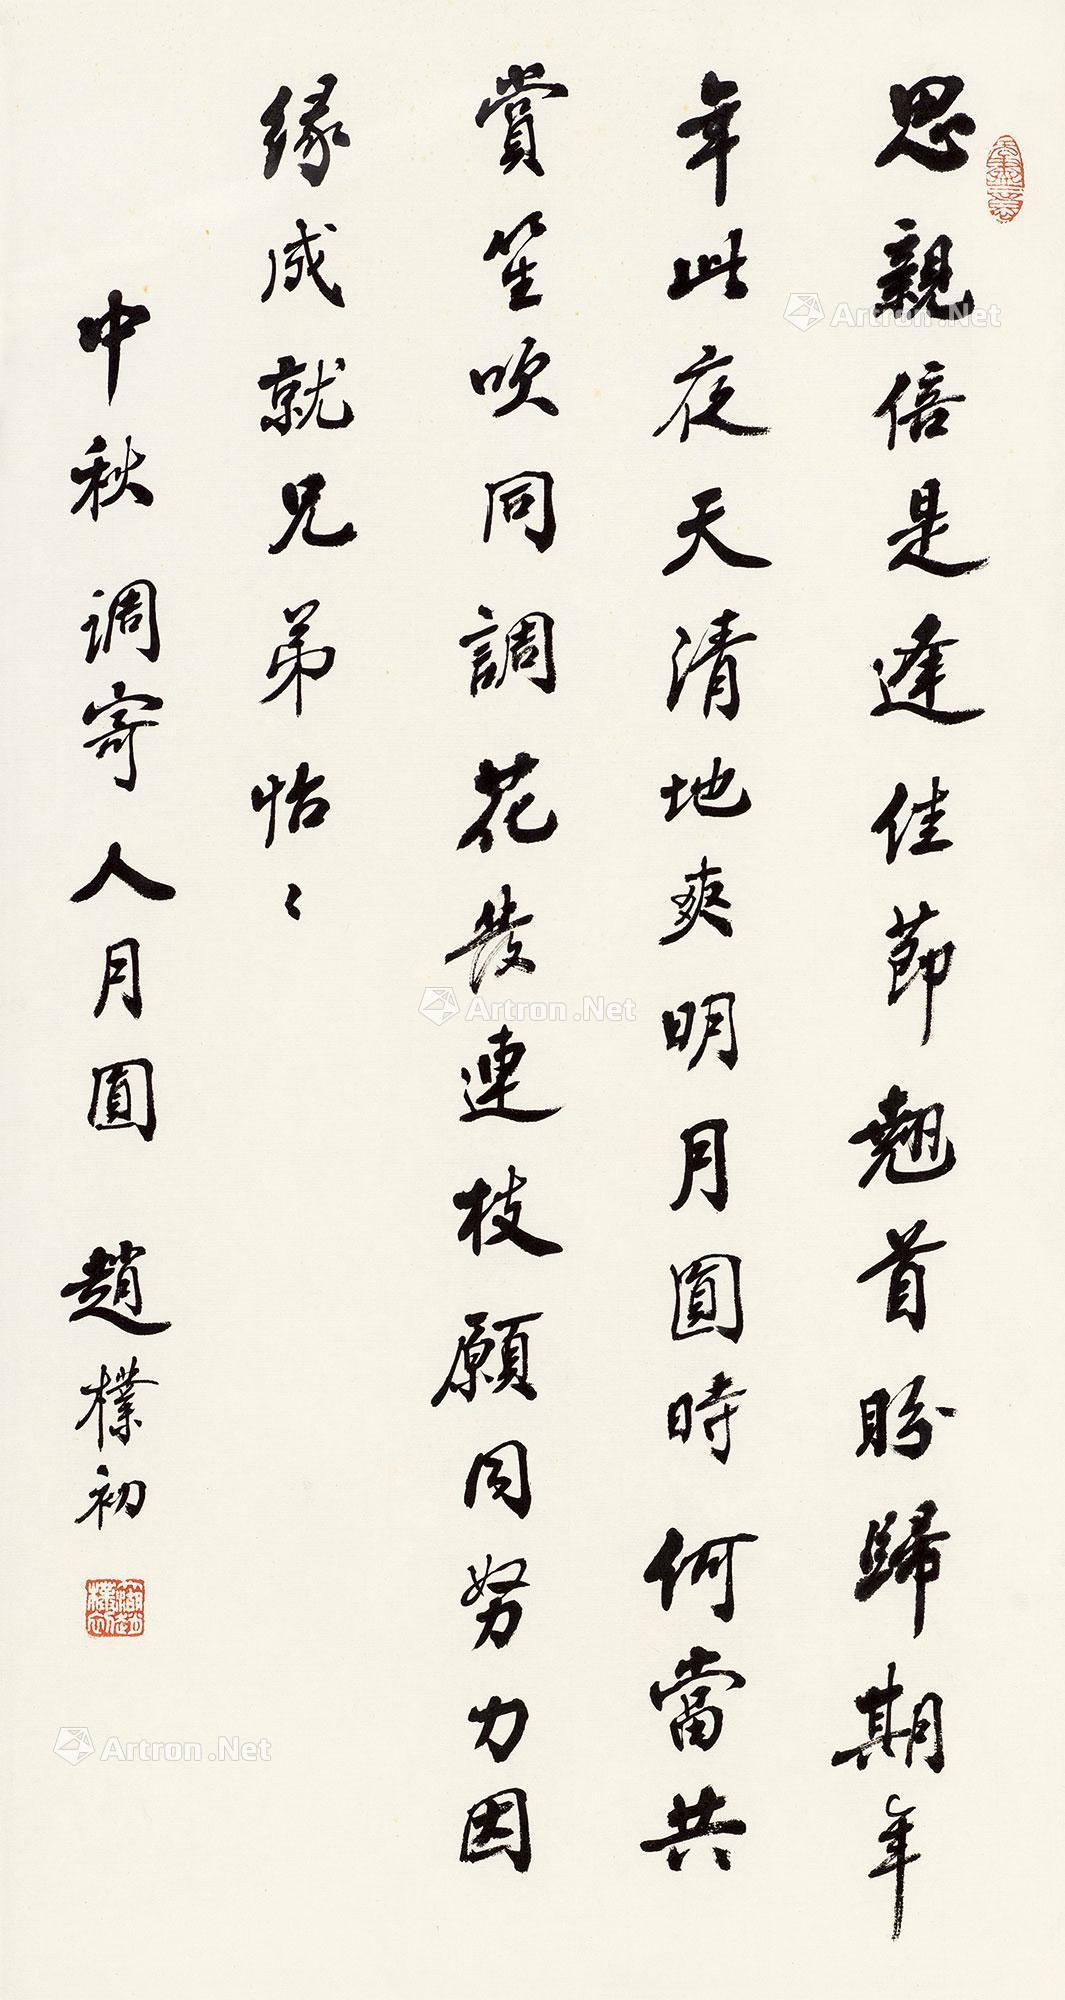 思親倍是逢佳節翹首盼歸期年
年此夜天清地爽明月圓時何當共
賞笙吹同調花發連枝願同努力因
緣成就兄弟怡〻
中秋调寄人月圓 趙樸初
Artron.Net
Artron.Net
Artron.Net